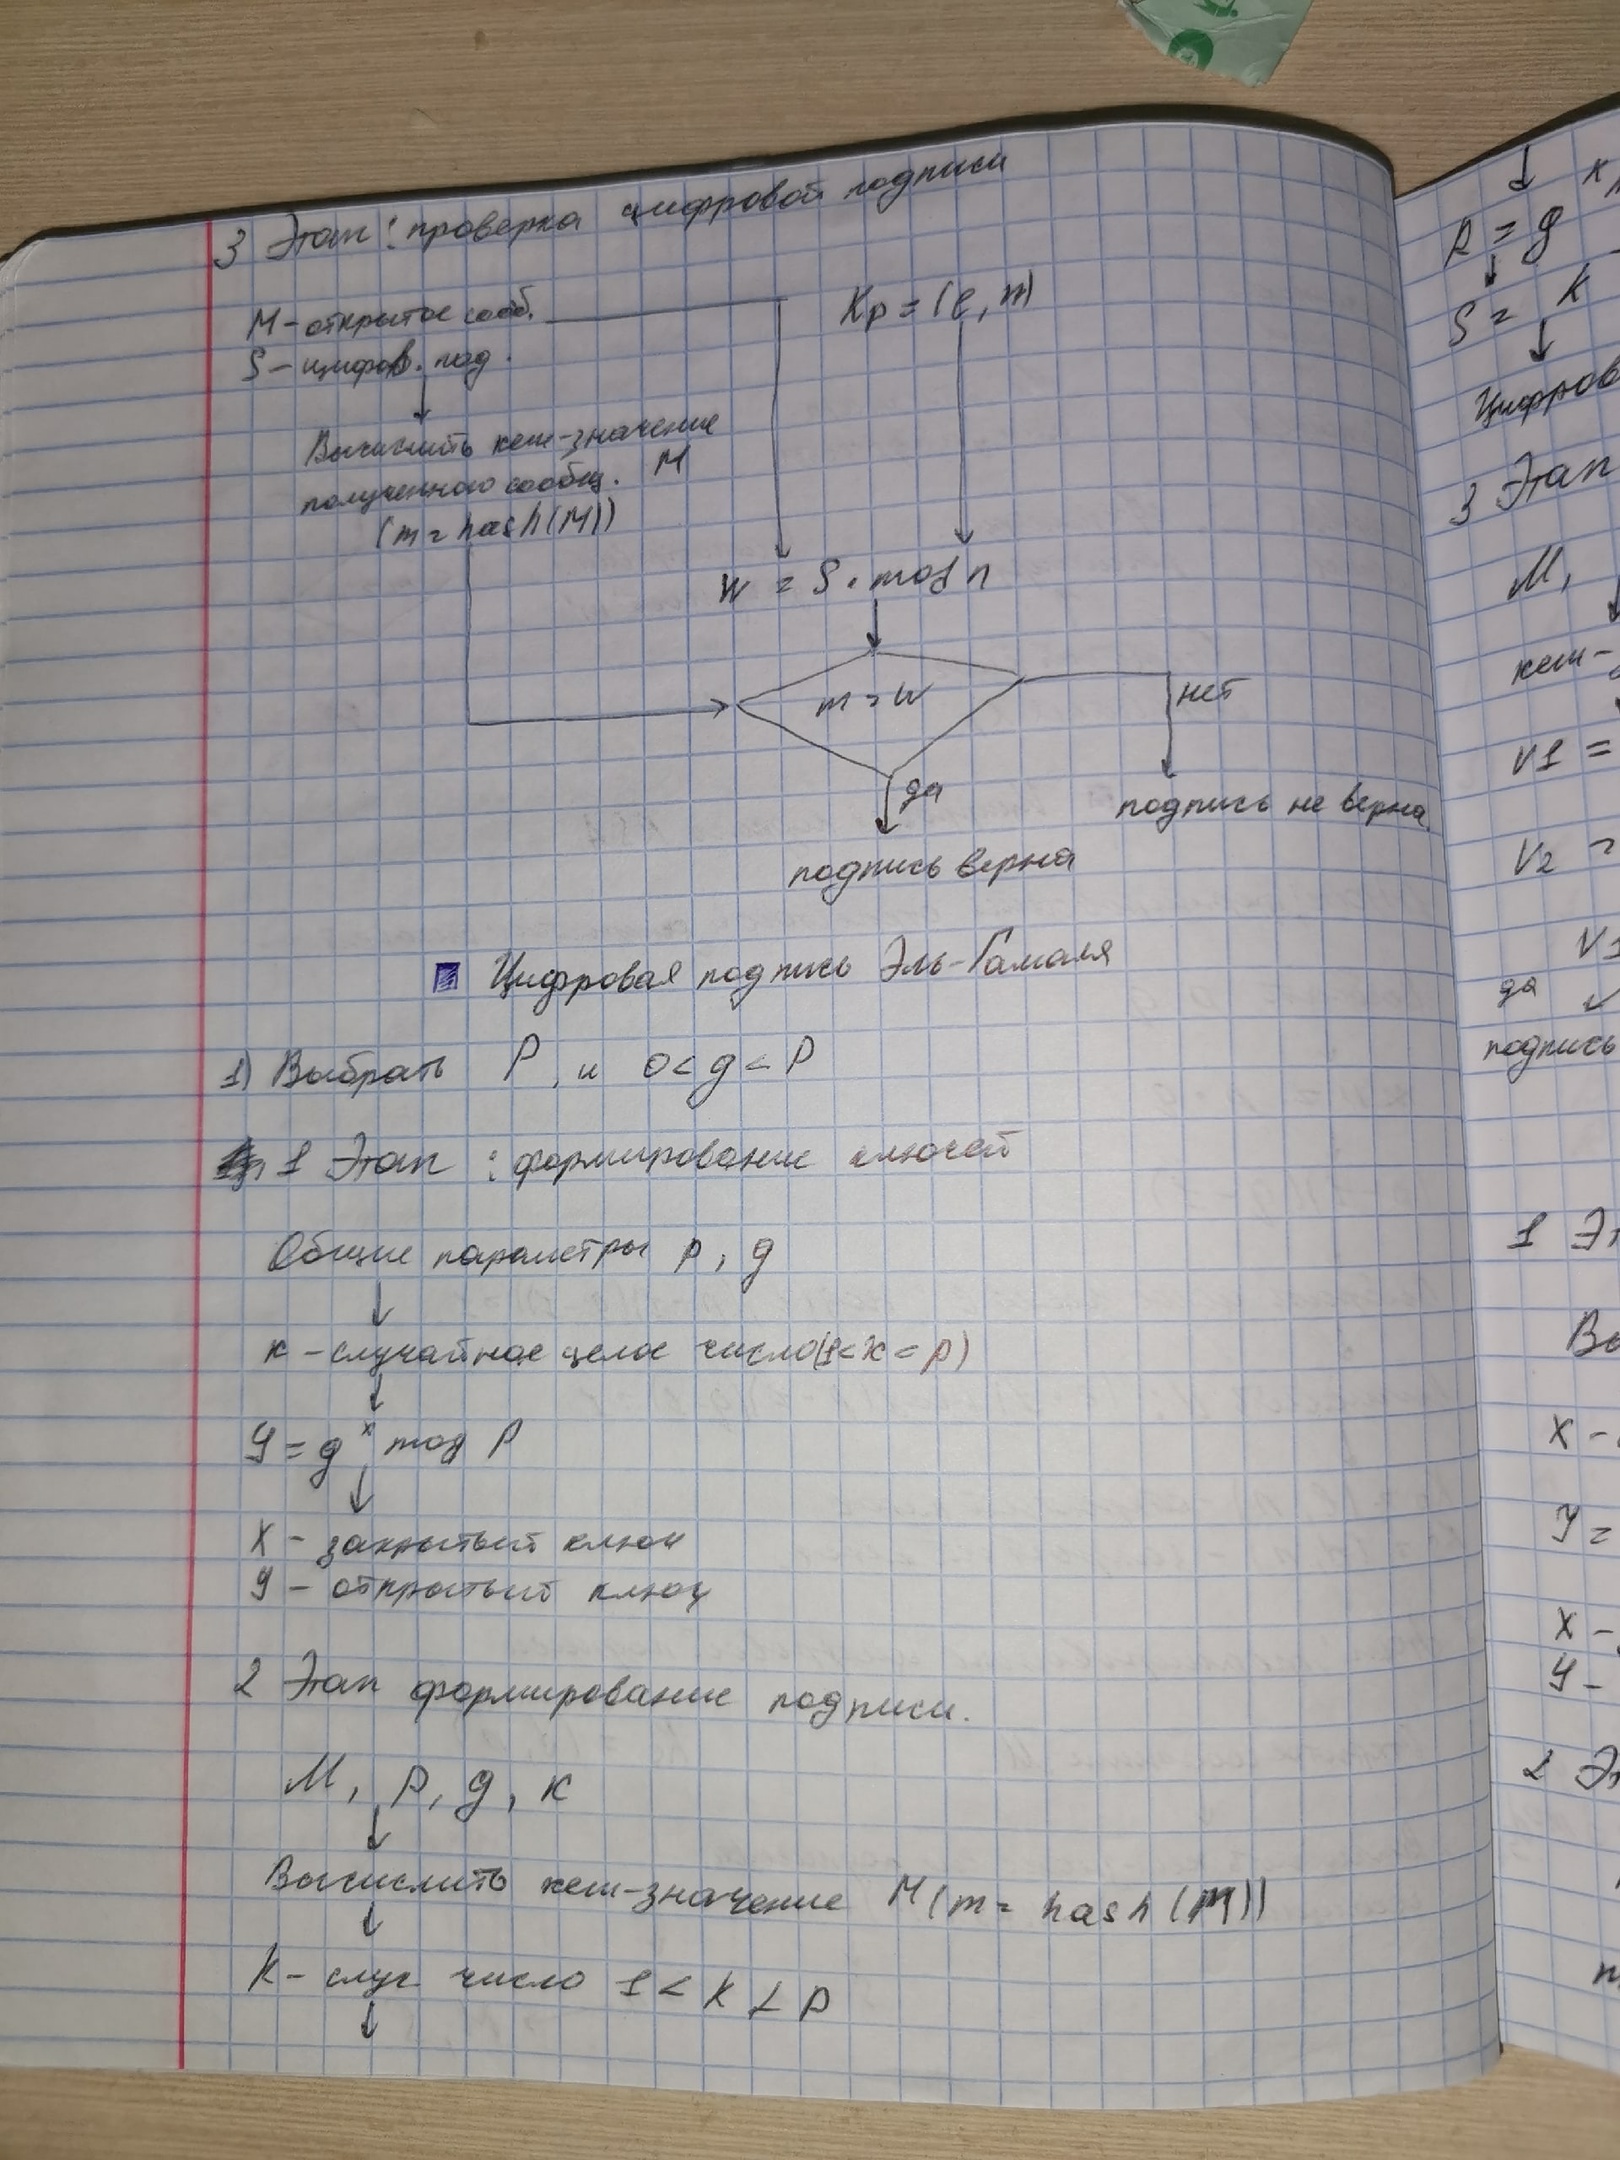 3 Этап: проверка цифровой подписи
M - открытое сооб.
Kp = (e, m)
S - цифров. под.
Вычислить хеш-значение
полученного сообщ. M
(m = hash(M))
W = S · mod n
m = W
нет
да
подпись не верна.
подпись верна
Цифровая подпись Эль-Гамаля
1) Выбрать P, и 0 < g < P
1 Этап : формирование ключей
Общие параметры p, g
к - случайное целое число (1 < x < p)
y = g^x mod P
X - закрытый ключ
y - открытый ключ
2 Этап формирование подписи.
M, p, g, к
Вычислить хеш-значение M (m = hash (M))
K - случ число 1 < K < p
R = g
S = K
Цифров
3 Этап
M,
хеш-
V1 =
V2 =
V1
да
подпись
1 Эт
Вы
X -
y =
X -
y -
2 Эт